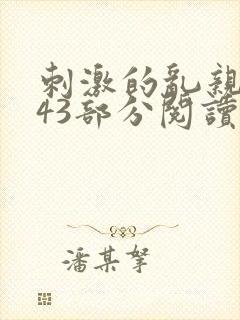 刺激的亂親
43部分閱讀
潘某拏